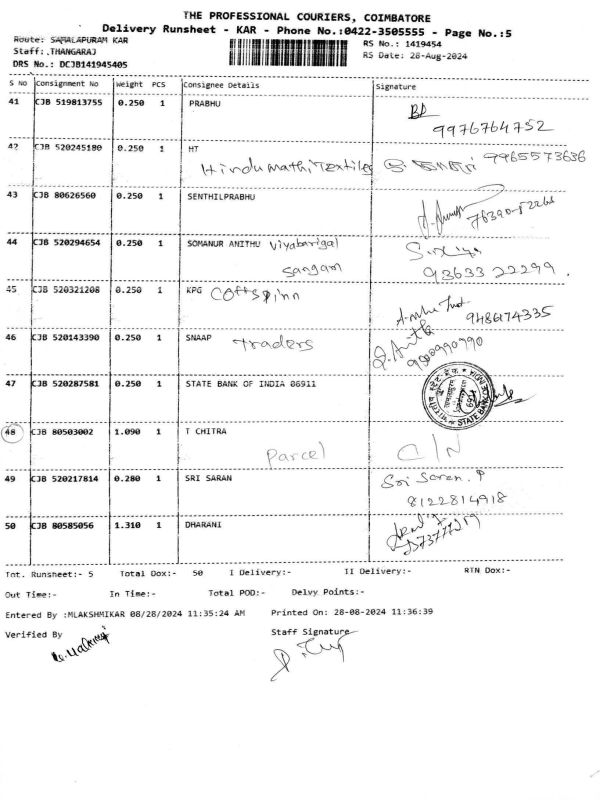 THE PROFESSIONAL COURIERS, COIMBATORE
Delivery Runsheet - KAR - Phone No.:0422-3505555 - Page No.:5
Route: SAMALAPURAM KAR
RS No.: 1419454
Staff:.THANGARAJ
RS Date: 28-Aug-2024
DRS No.: DCJB141945405
S No Consignment No Weight PCS Consignee Details Signature
41 CJB 519813755 0.250 1 PRABHU
9976764752
42 CJB 520245180 0.250 1 HT
Hindumathi Textiles 9965573636
43 CJB 80626560 0.250 1 SENTHILPRABHU
44 CJB 520294654 0.250 1 SOMANUR ANITHU Viyabarigal
Sangam 93633 22299.
45 CJB 520321208 0.250 1 KPG Cottspinn
9486174335
46 CJB 520143390 0.250 1 SNAAP
Traders 9000990990
47 CJB 520287581 0.250 1 STATE BANK OF INDIA 06911
STATE BANK OF INDIA
48 CJB 80503002 1.090 1 T CHITRA
Parcel C/N
49 CJB 520217814 0.280 1 SRI SARAN Sri Saran. P
8122814918
50 CJB 80585056 1.310 1 DHARANI
Tot. Runsheet:- 5 Total Dox:- 50 I Delivery:- II Delivery:- RTN Dox:-
Out Time:- In Time:- Total POD:- Delvy Points:-
Entered By :MLAKSHMIKAR 08/28/2024 11:35:24 AM Printed On: 28-08-2024 11:36:39
Verified By Staff Signature